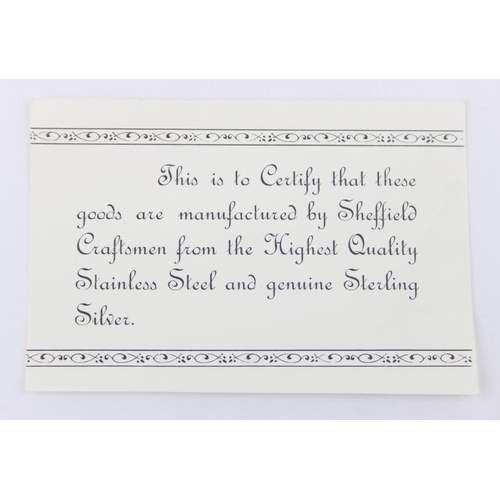 This is to Certify that these
goods are manufactured by Sheffield
Craftsmen from the Highest Quality
Stainless Steel and genuine Sterling
Silver.